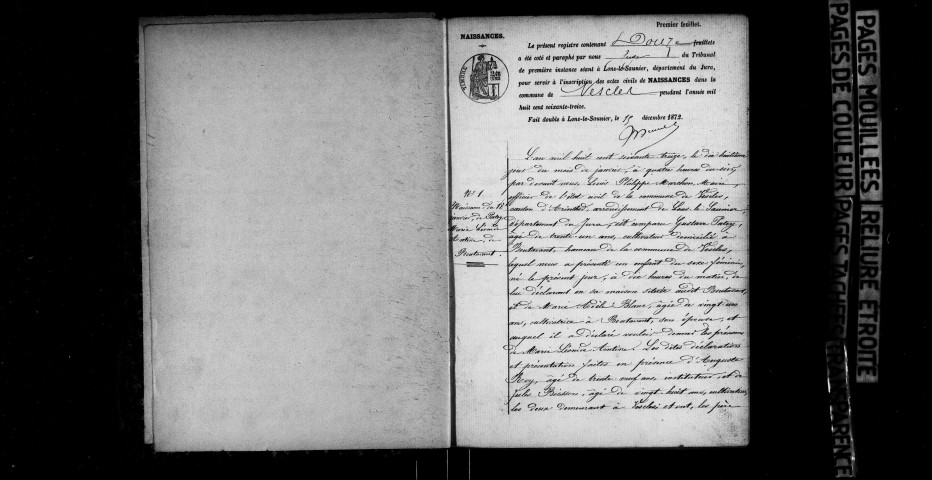 Premier feuillet.
NAISSANCES.
Le présent registre contenant Douze feuillets
a été coté et paraphé par nous juge du Tribunal
de première instance séant à Lons-le-Saunier, département du Jura,
pour servir à l'inscription des actes civils de NAISSANCES dans la
commune de Vescles pendant l'année mil
huit cent soixante-treize.
Fait double à Lons-le-Saunier, le 15 décembre 1872.
L'an mil huit cent soixante treize, le dix huitième
jour du mois de janvier, à quatre heures du soir
par devant nous, Louis Philippe Marchon, Maire,
officier de l'état civil de la commune de Vescles,
canton d'Arinthod, arrondissement de Lons le Saunier,
département du Jura, est comparu Gustave
âgé de trente un ans, cultivateur domicilié à
hameau de la commune de Vescles,
lequel nous a présenté un enfant du sexe féminin,
né le présent jour, à dix heures du matin, de
lui déclarant en sa maison située audit
et de Marie Adèle Blanc, âgée de vingt
ans, cultivatrice à son épouse, et
auquel il a déclaré vouloir donner les prénoms
de Marie Léonie Les dites déclarations
et présentation faites en présence d'Auguste
Roy, âgé de trente neuf ans, instituteur et de
Jules Buisson, âgé de vingt huit ans, cultivateur,
les deux demeurant à Vescles et ont, les père
N° 1
Naissance du 18
janvier, de
Marie Léonie
de
PAGES MOUILLEES RELIURE ETROITE
PAGES DE COULEUR PAGES TACHEES TRANSPARENCE